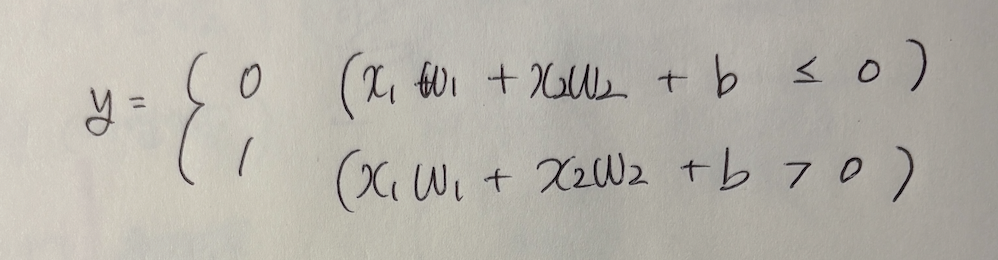 y = { 0 (x₁w₁ + x₂w₂ + b ≤ 0)
1 (x₁w₁ + x₂w₂ + b > 0)